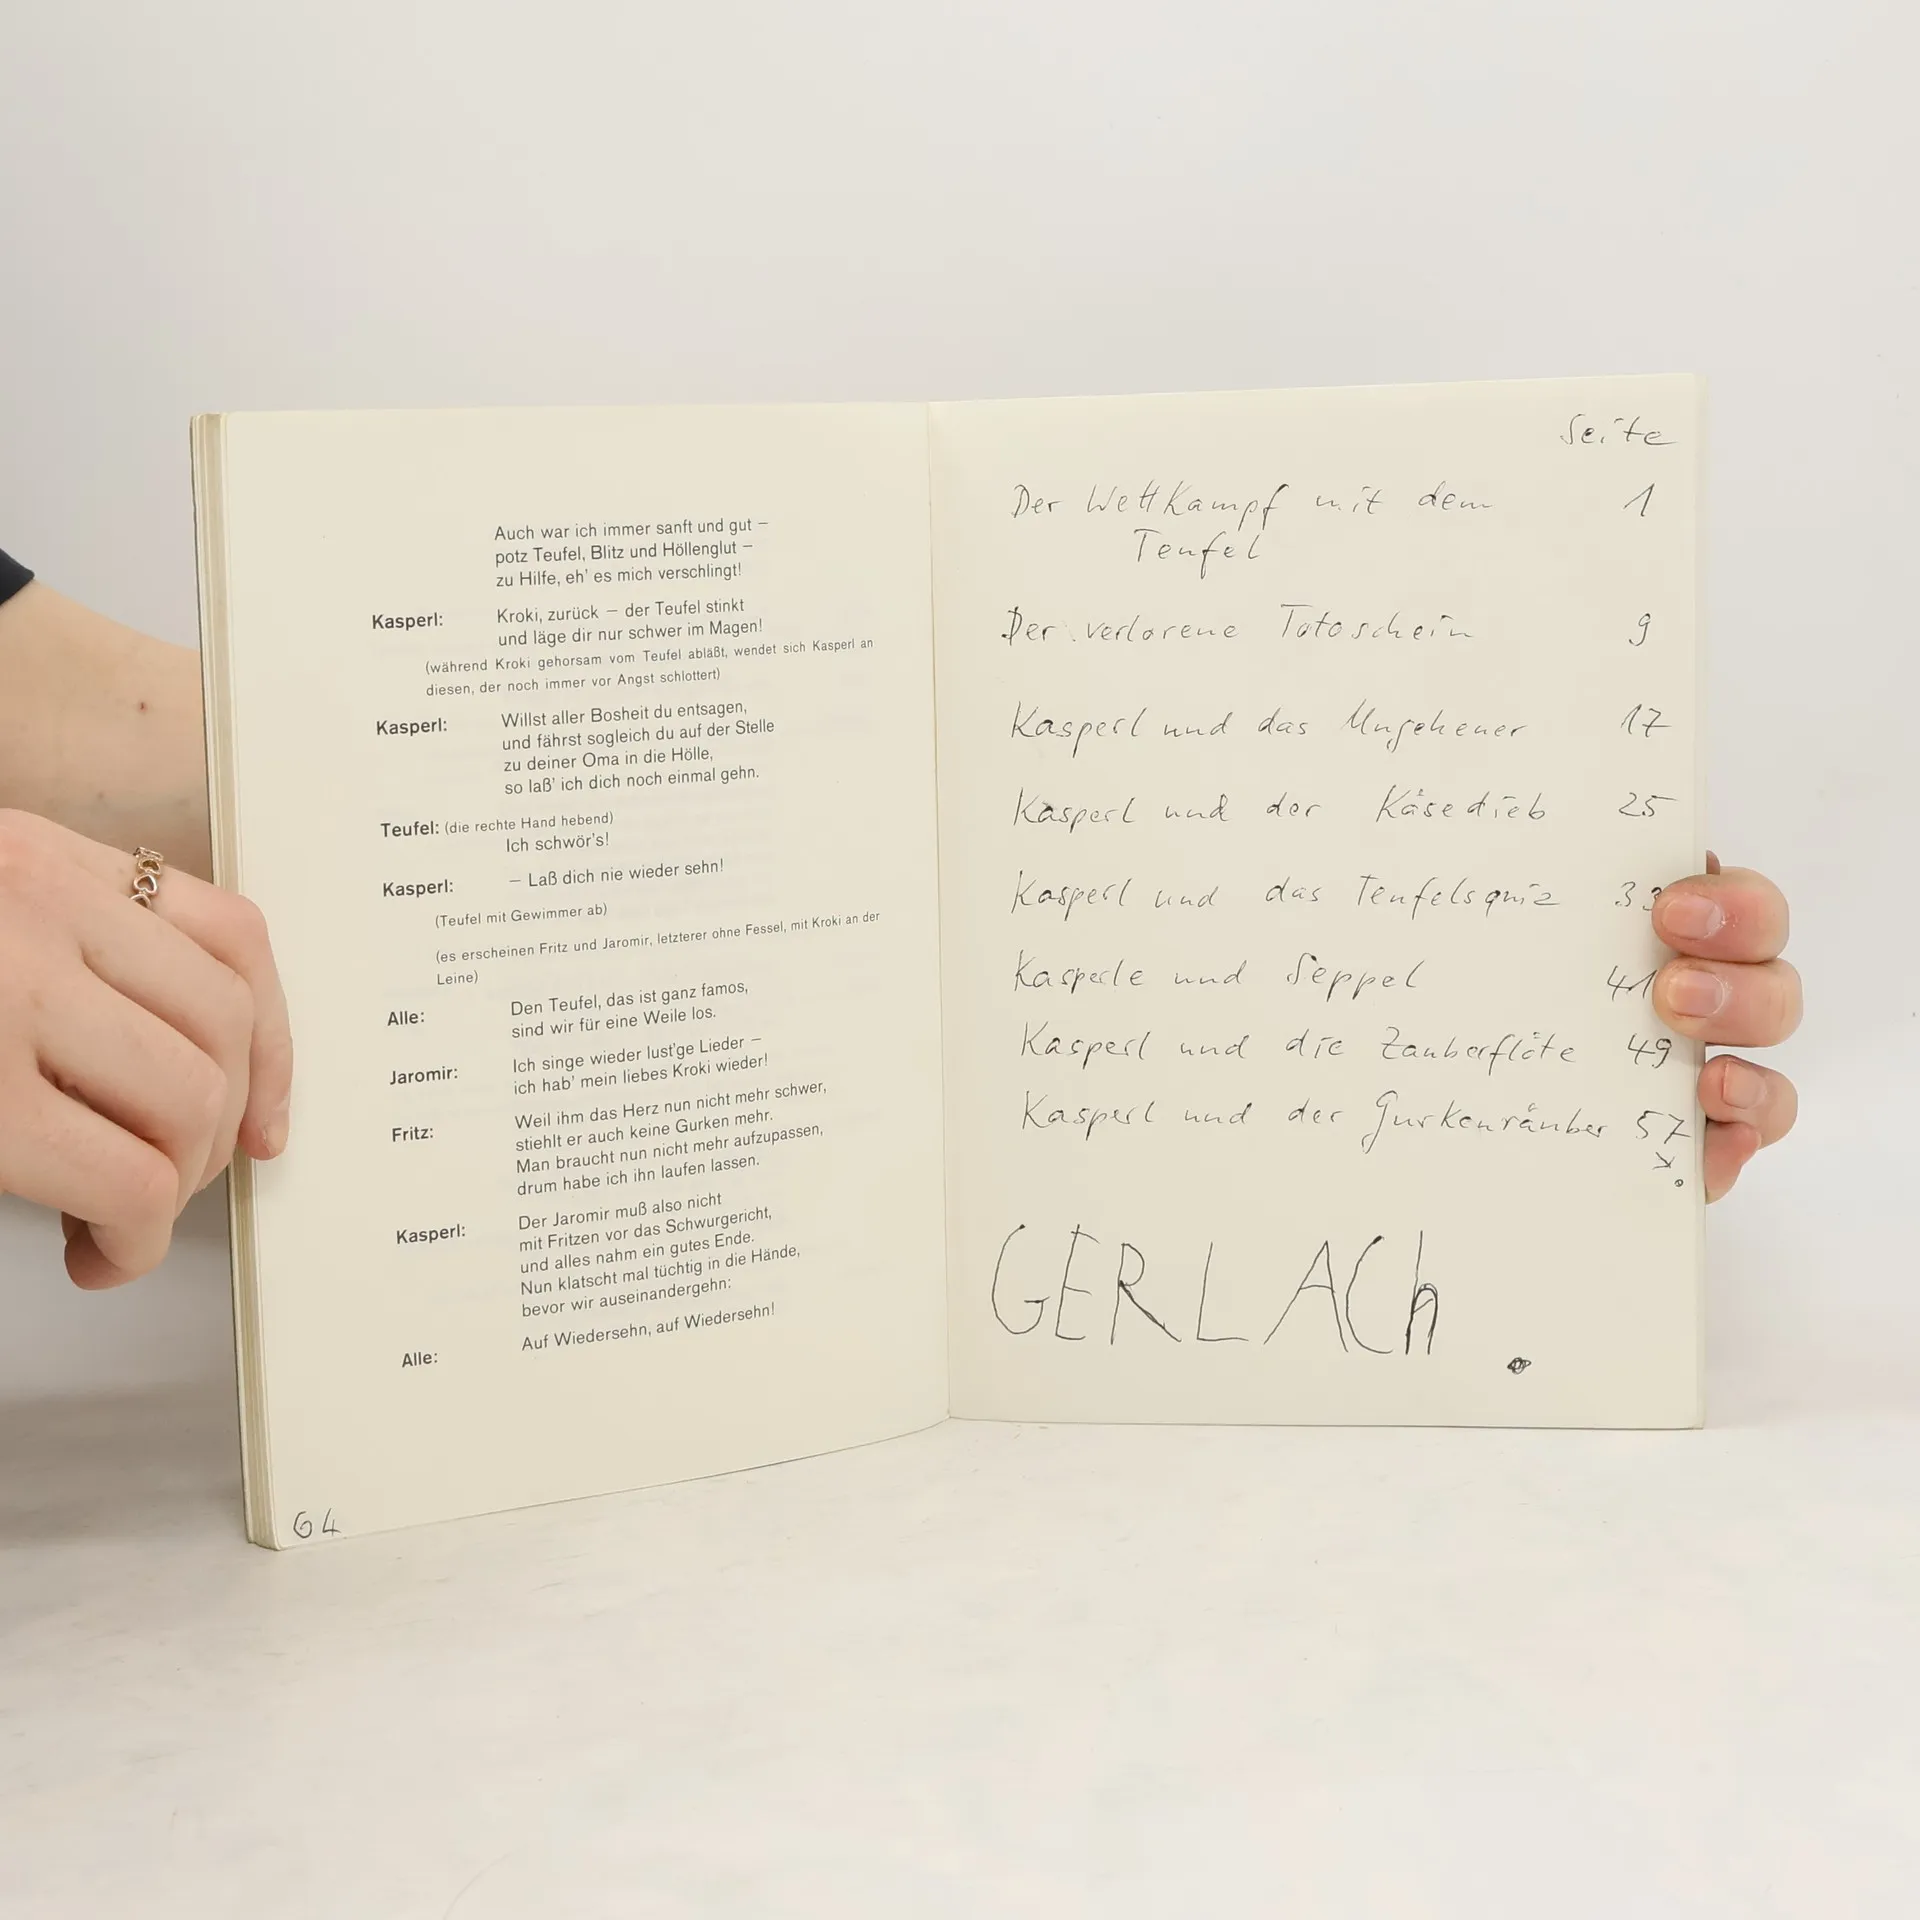 Auch war ich immer sanft und gut –
potz Teufel, Blitz und Höllenglut –
zu Hilfe, eh' es mich verschlingt!
Kasperl: Kroki, zurück – der Teufel stinkt
und läge dir nur schwer im Magen!
(während Kroki gehorsam vom Teufel abläßt, wendet sich Kasperl an
diesen, der noch immer vor Angst schlottert)
Kasperl: Willst aller Bosheit du entsagen,
und fährst sogleich du auf der Stelle
zu deiner Oma in die Hölle,
so laß' ich dich noch einmal gehn.
Teufel: (die rechte Hand hebend)
Ich schwör's!
Kasperl: – Laß dich nie wieder sehn!
(Teufel mit Gewimmer ab)
(es erscheinen Fritz und Jaromir, letzterer ohne Fessel, mit Kroki an der
Leine)
Alle: Den Teufel, das ist ganz famos,
sind wir für eine Weile los.
Jaromir: Ich singe wieder lust'ge Lieder –
ich hab' mein liebes Kroki wieder!
Fritz: Weil ihm das Herz nun nicht mehr schwer,
stiehlt er auch keine Gurken mehr.
Man braucht nun nicht mehr aufzupassen,
drum habe ich ihn laufen lassen.
Kasperl: Der Jaromir muß also nicht
mit Fritzen vor das Schwurgericht,
und alles nahm ein gutes Ende.
Nun klatscht mal tüchtig in die Hände,
bevor wir auseinandergehn:
Alle: Auf Wiedersehn, auf Wiedersehn!
64
Seite
Der Wettkampf mit dem 1
Teufel
Der verlorene Totoschein 9
Kasperl und das Ungeheuer 17
Kasperl und der Käsedieb 25
Kasperl und das Teufelsquiz 33
Kasperle und Seppel 41
Kasperl und die Zauberflöte 49
Kasperl und der Gurkenräuber 57
GERLACh.